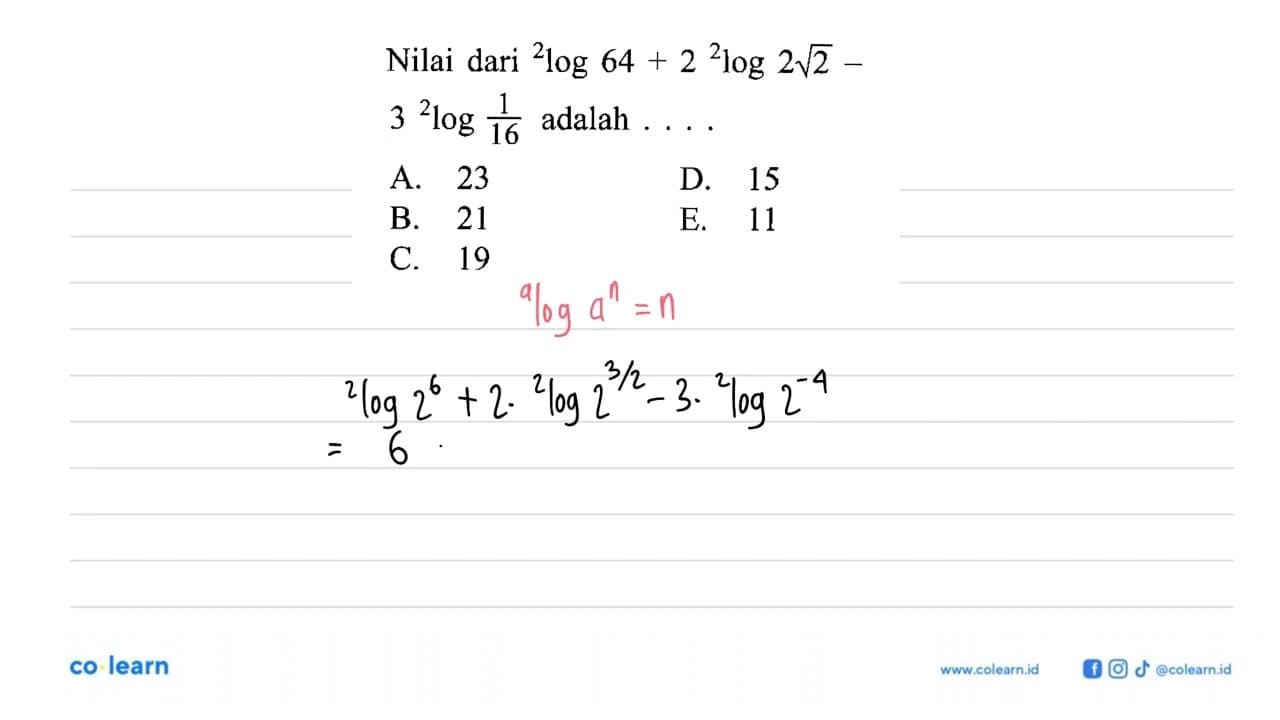 Nilai dari ²log 64 + 2 ²log 2√2 –
3 ²log 1/16 adalah . . . .
A. 23 D. 15
B. 21 E. 11
C. 19
ᵃlog aⁿ = n
²log 2⁶ + 2. ²log 2^3/2 – 3. ²log 2⁻⁴
= 6
co learn
www.colearn.id @colearn.id